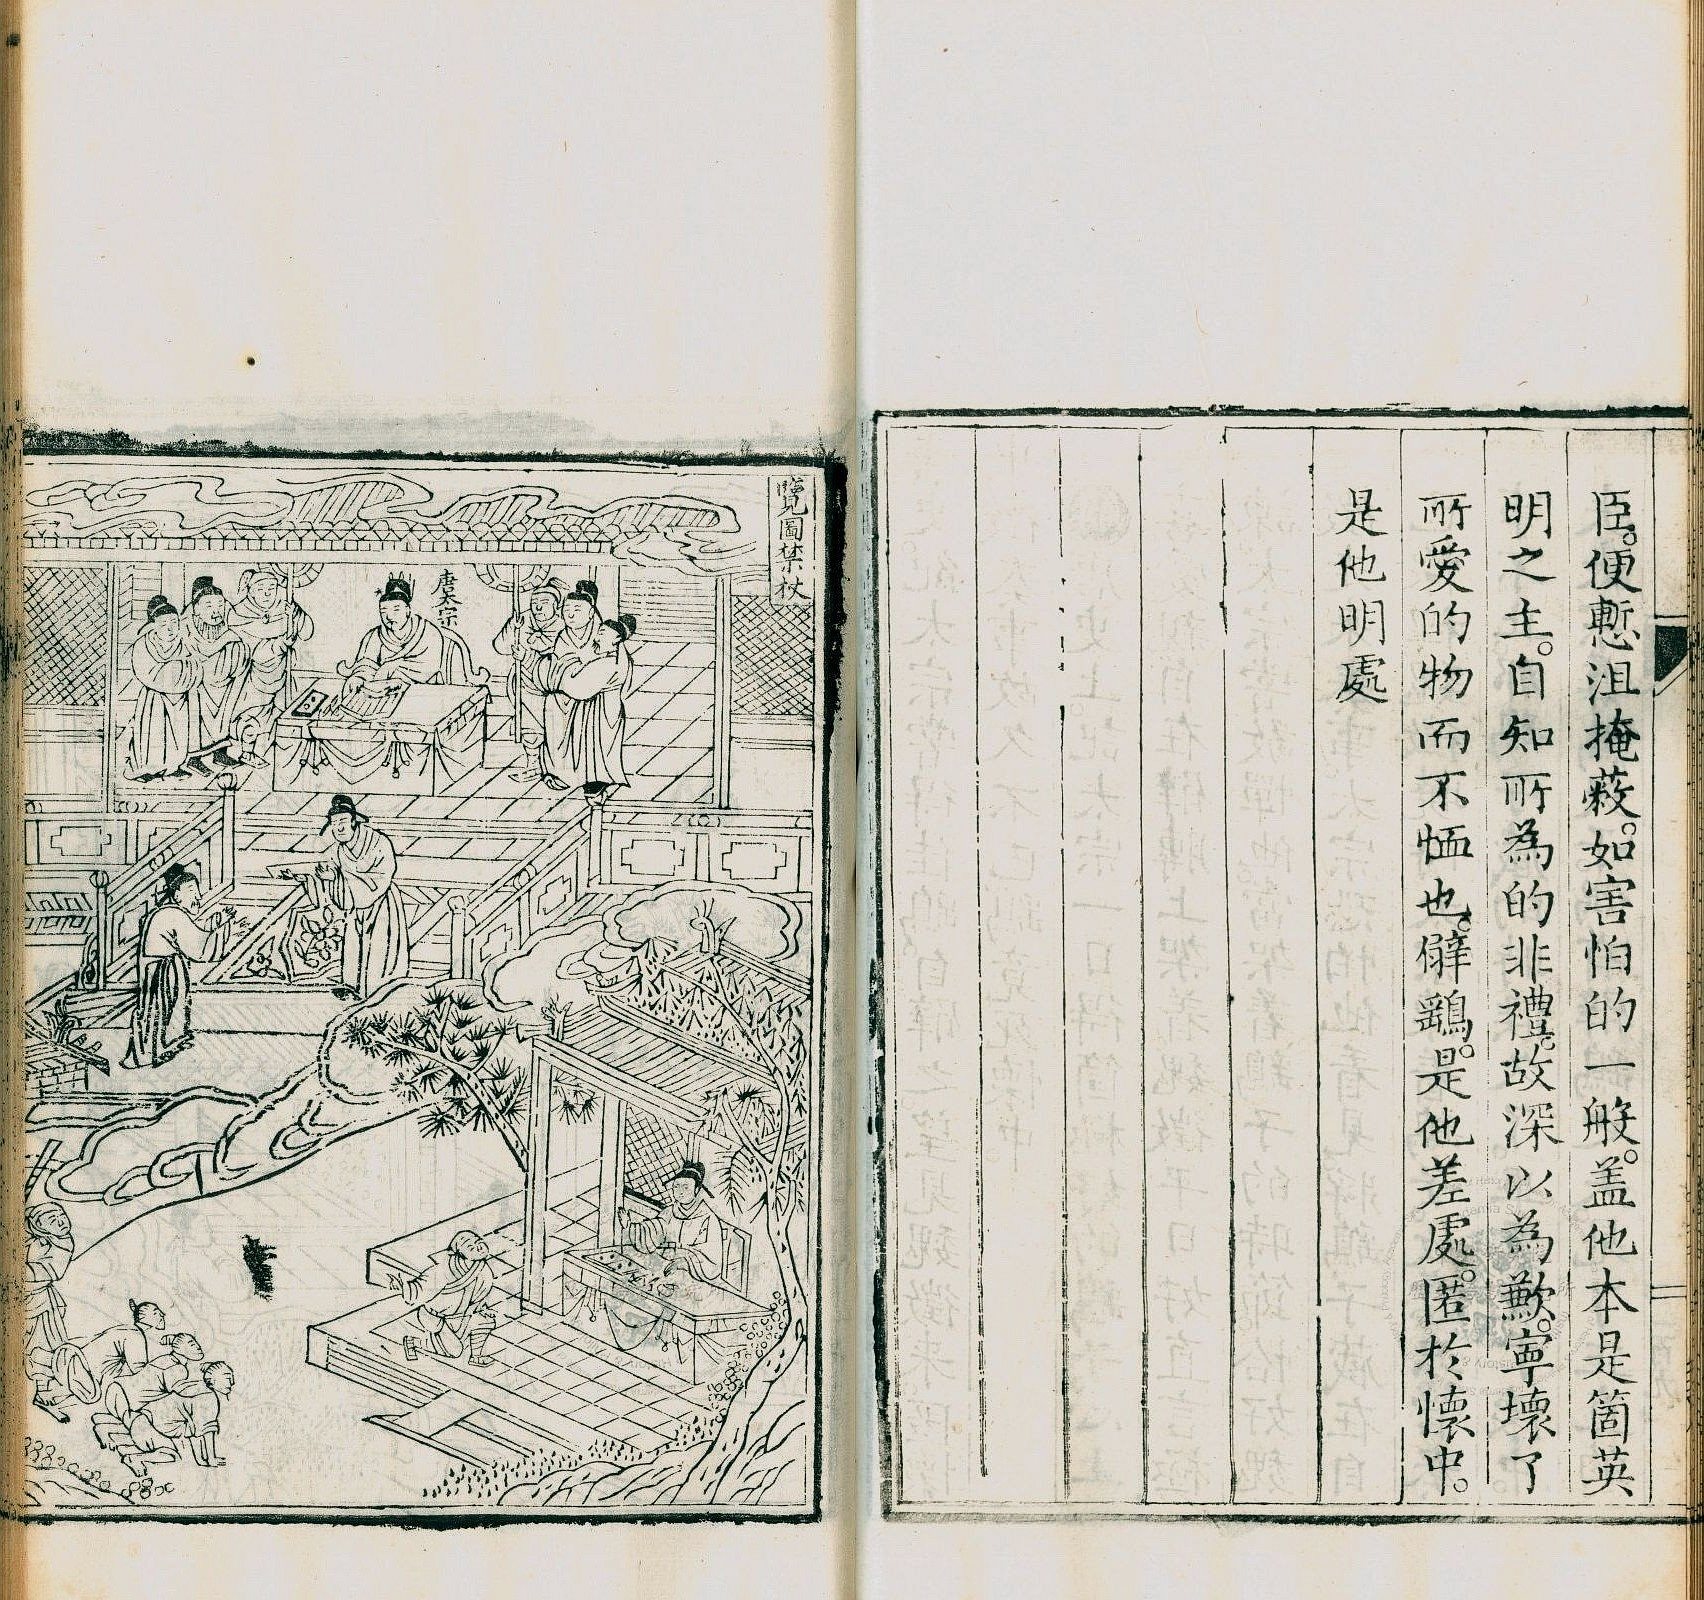 臣。便慙沮掩蔽。如害怕的一般。盖他本是箇英
明之主。自知所為的非禮。故深以為歉。寧壞了
所愛的物而不恤也。僻鷂。是他差處。匿於懷中。
是他明處
覽圖禁杖
唐太宗